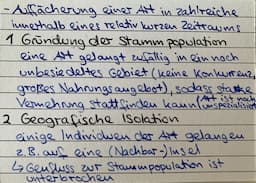 - Auffächerung einer Art in zahlreiche
innerhalb eines relativ kurzen Zeitraums
1 Gründung der Stammpopulation
eine Art gelangt zufällig in ein noch
unbesiedeltes Gebiet (keine Konkurrenz,
großes Nahrungsangebot), sodass starke
Vermehrung stattfinden kann (Art ist noch unspezialisiert)
2 Geografische Isolation
einige Individuen der Art gelangen
z.B. auf eine (Nachbar-)Insel
↳ Genfluss zur Stammpopulation ist
unterbrochen